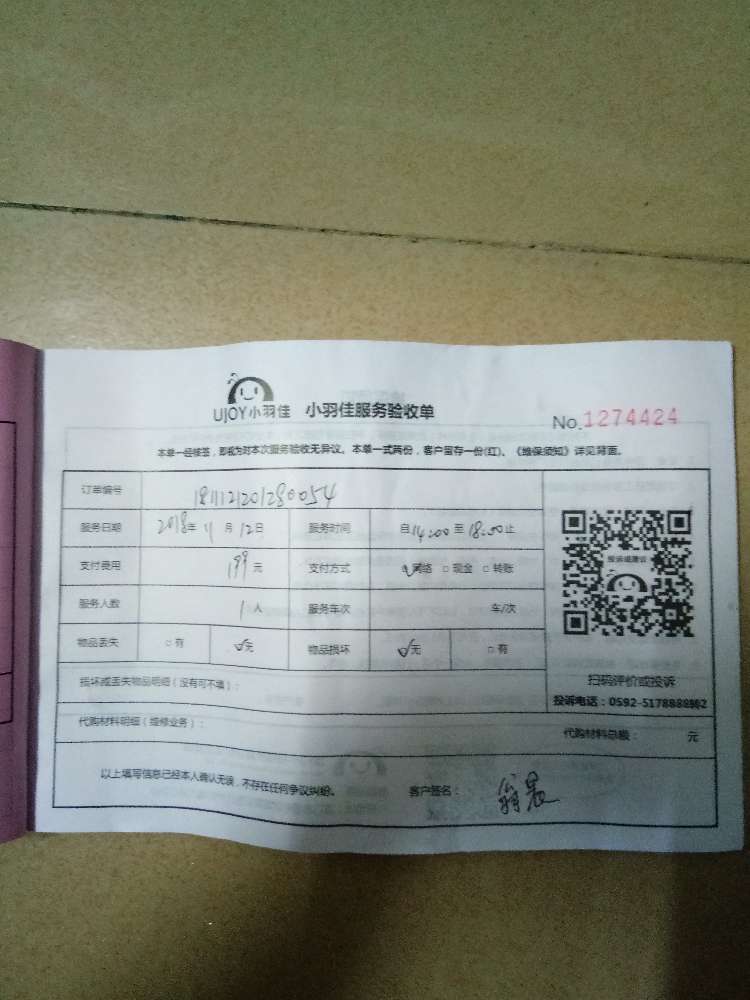 UJOY小羽佳 小羽佳服务验收单
No.1274424
本单一经接签，即视为对本次服务验收无异议。本单一式两份，客户留存一份(红)、《维保须知》详见背面。
订单编号 1811121201280054
服务日期 2018年 11月 12日 服务时间 自14:00至18:00止
支付费用 199元 支付方式 网络 □现金 □转账
服务人数 1人 服务车次 车/次
物品丢失 □有 √无 物品损坏 √无 □有
投诉或建议
扫码评价或投诉
投诉电话：0592-5178888转2
损坏或丢失物品明细（没有可不填）：
代购材料明细（维修业务）： 代购材料总额： 元
以上填写信息已经本人确认无误，不存在任何争议纠纷。 客户签名：